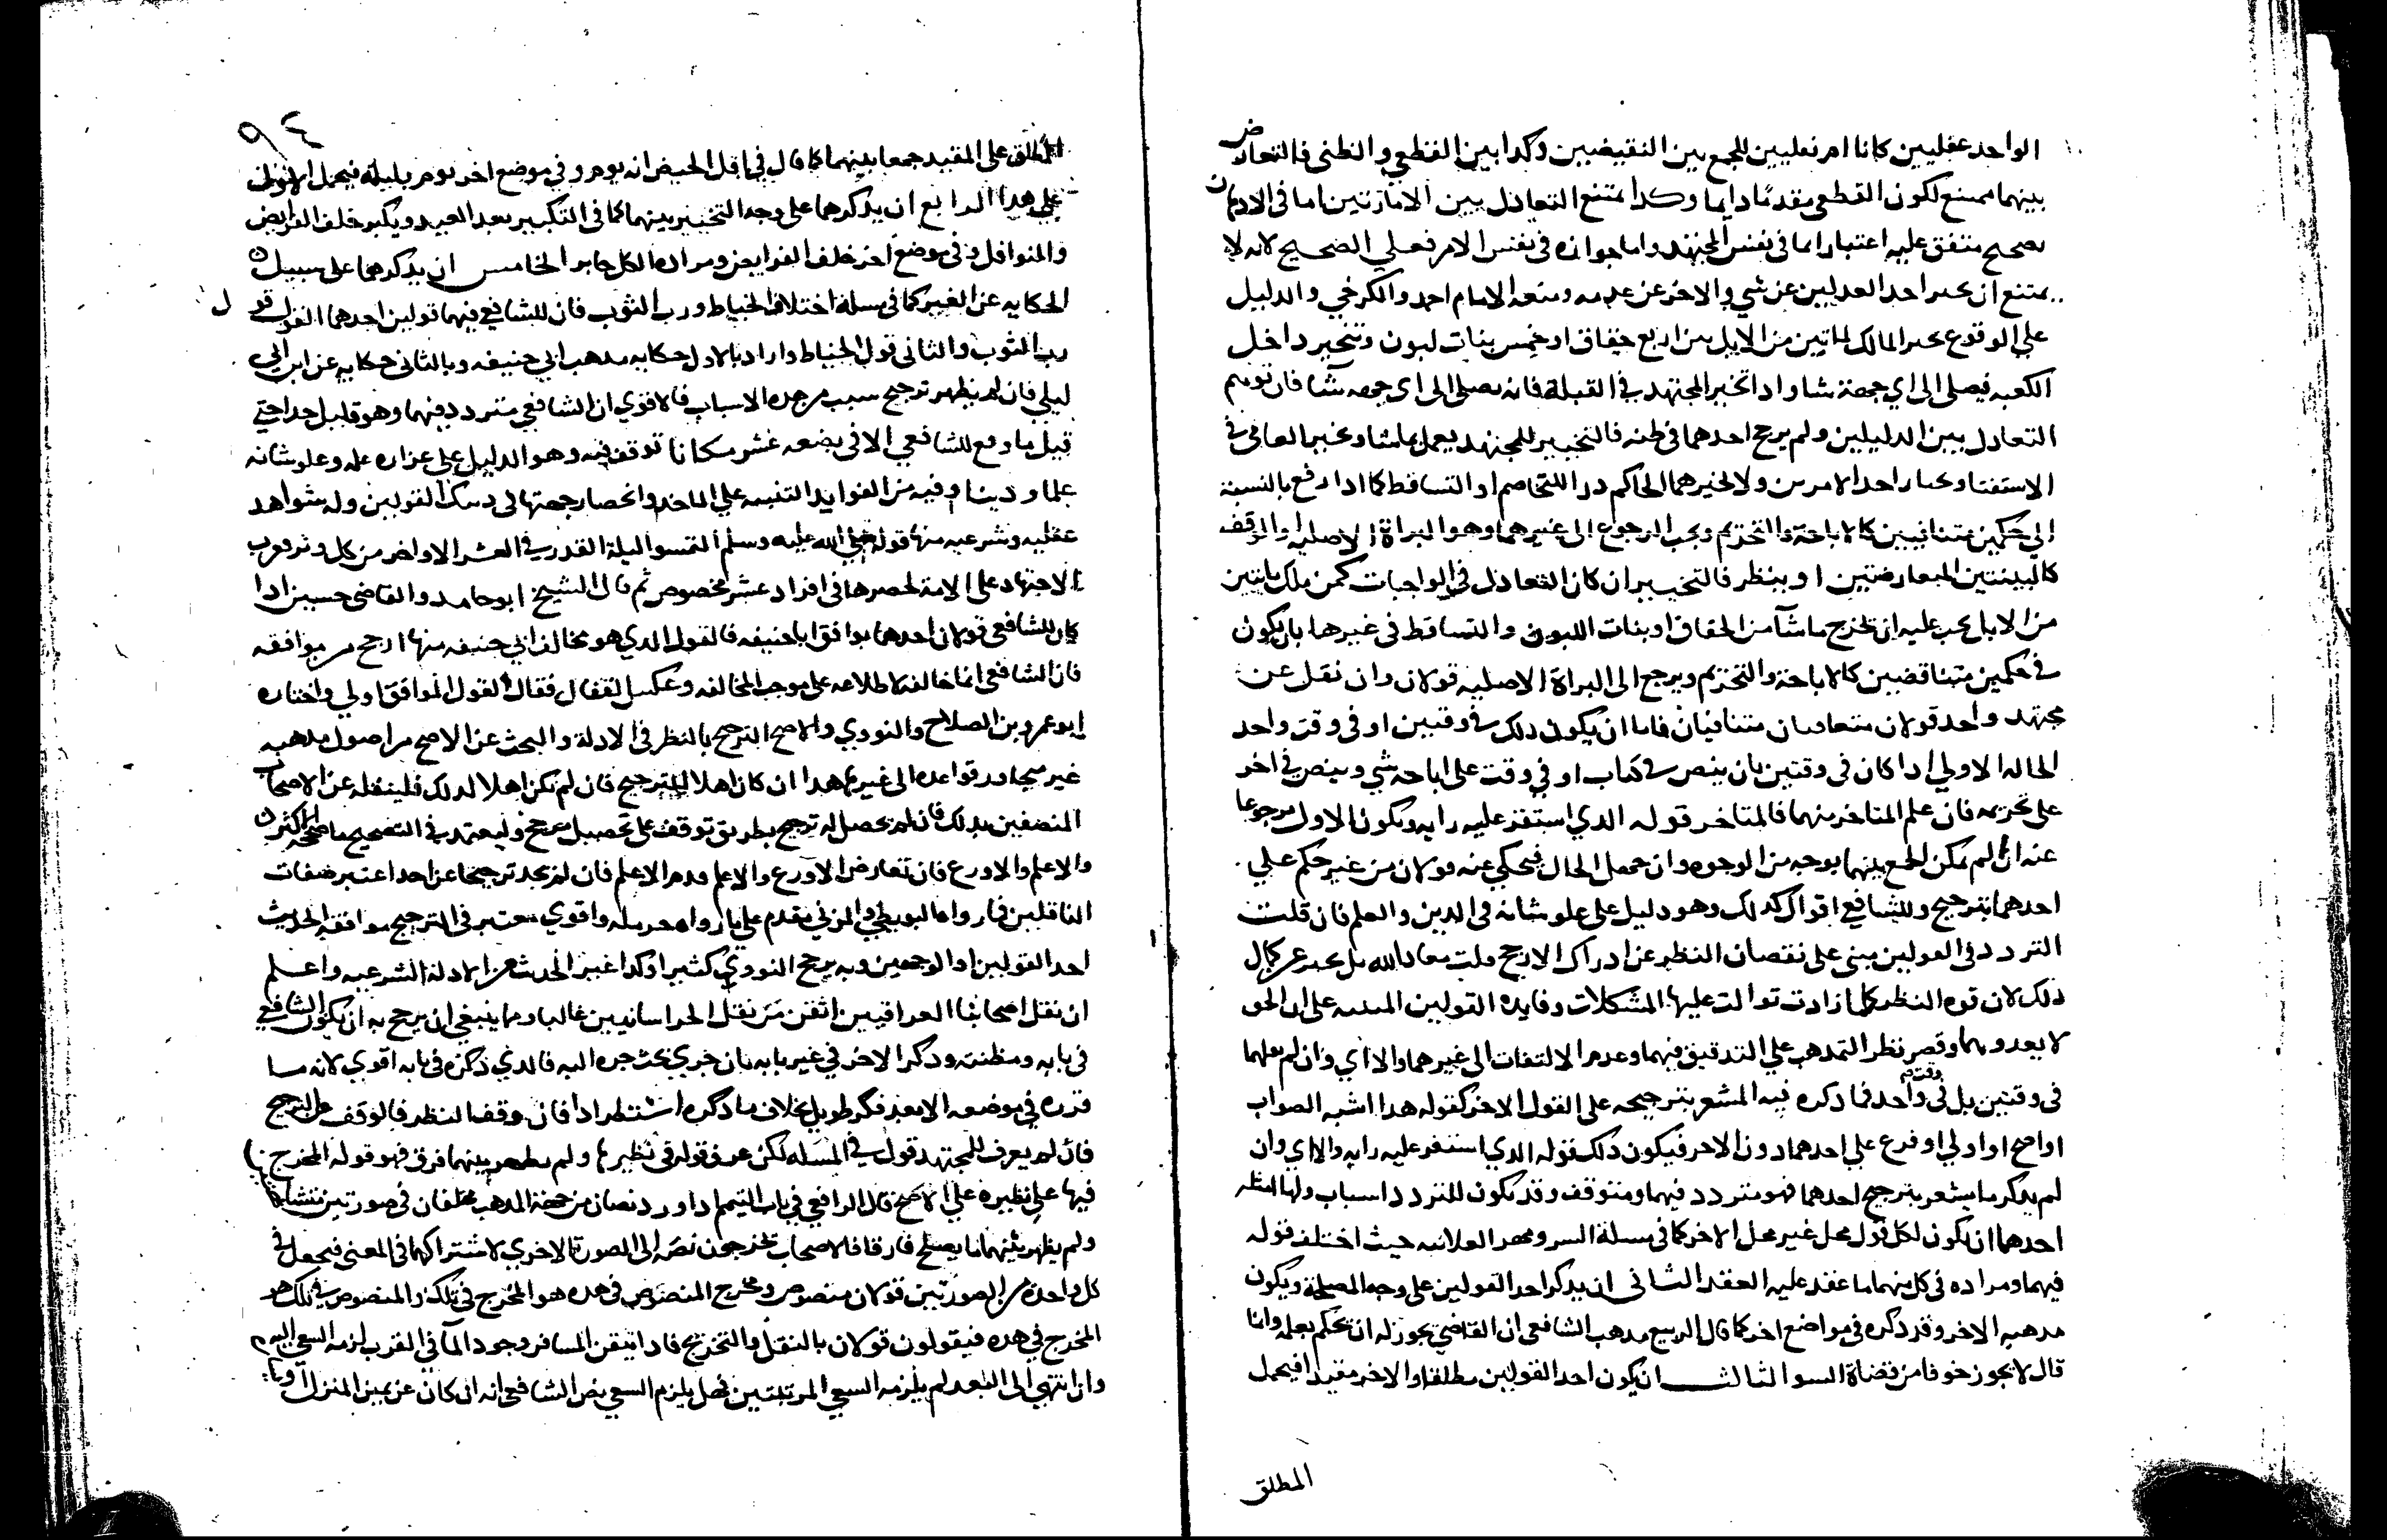 الواحد عقليين كانا ام نعليين للجمع بين النقيضين وكدا بين القطعي والظني فالتعادض
بينهما ممتنع لكون القطعي مقدمًا دايما وكدا يمتنع التعادل بين الامارتين اما في الادهان
بصحيح متفق عليه اعتبارا بما في نفس المجتهد واما جوازه في نفس الامر فعلي الصحيح لانه لا
يمتنع ان يخبر احد العدلين عن شي والاخر عن عدمه ومنعه الامام احمد والكرخي والدليل
علي الوقوع يخير المالك لماتين من الابل بين اربع حقاق او خمس بنات لبون وتخير داخل
الكعبه فيصلي الي اي جهة شا وادا تخير المجتهد في القبلة فانه يصلي الي اي جهه شآ فان توهم
التعادل بين الدليلين ولم يرجح احدهما في ظنه فالتخيير للمجتهد يعمل بما شا ويخير العامي في
الاستفتا ويختار احد الامرين ولا يخيرهما الحاكم درا للتخاصم او التساقط كما ادا رفع بالنسبة
الي حكمين متنافيين كالاباحة والتحريم ويجب الرجوع الي غيرهما وهو البراة الاصليه او الوقف
كالبينتين المتعارضتين او ينظر فالتخيير ان كان التعادل في الواجبات كمن ملك مايتين
من الابل يجب عليه ان يخرج ما شآ من الحقاق او بنات اللبون والتساقط في غيرها بان يكون
في حكمين متناقضين كالاباحة والتحريم ويرجع الي البراة الاصليه قولان وان نقل عن
مجتهد واحد قولان متعاقبان متنافيان فاما ان يكون دلك في وقتين او في وقت واحد
الحاله الاولي ادا كان في وقتين بان ينص في كتاب او في وقت علي اباحه شي وينص في اخر
علي تحريمه فان علم المتاخر منهما فالمتاخر قوله الدي استقر عليه رايه ويكون الاول مرجوعا
عنه ان لم يمكن الجمع بينهما بوجه من الوجوه وان جهل الحال فيحكي عنه قولان من غير حكم علي
احدهما بترجيح وللشافعي اقوال كدلك وهو دليل علي علو شانه في الدين والعلم فان قلت
التردد في القولين مبني علي نقصان النظر عن ادراك الارجح قلت معاد الله بل يخبر عن كمال
دلك لان قوه النظر كلما زادت توالت عليها المشكلات وفايده القولين التنبيه علي ان الحق
لا يعدوهما وقصر نظر المتمدهب علي التدقيق فيهما وعدم الالتفات الي غيرهما والا اي وان لم يعلما
في وقتين بل في وقت واحد فما دكره فيه المشعر بترجيحه علي القول الاخر كقوله هدا اشبه الصواب
او اصح او اولي او فرع علي احدهما دون الاخر فيكون دلك قوله الدي استقر عليه رايه والا اي وان
لم يدكر ما يشعر بترجيح احدهما فهو متردد فيهما ومتوقف وقد يكون للتردد اسباب ولها امثله
احدها ان يكون لكل قول محل غير محل الاخر كما في مسلة السر ومهر العلانيه حيث اختلف قوله
فيهما ومراده في كل منهما ما عقد عليه العقد الثاني ان يدكر احد القولين علي وجه المصلحة ويكون
مدهبه الاخر وقد دكره في مواضع اخر كما قال الربيع مدهب الشافعي ان القاضي يجوز له ان يحكم بعلمه وانما
قال لا يجوز خوفا من قضاة السو الثالث ان يكون احد القولين مطلقا والاخر مقيدا فيحمل
المطلق
٩٤
المطلق علي المقيد جمعا بينهما كما قال في اقل الحيض انه يوم وفي موضع اخر يوم بليلة فيحمل الاول
علي هدا الرابع ان يدكرهما علي وجه التخيير بينهما كما في التكبير بعد العيد ويكبر خلف الفرايض
والنوافل وفي موضع اخر خلف الفرايض ومراده الكل جايز الخامس ان يدكرهما علي سبيل
الحكايه عن الغير كما في مسلة اختلاف الخياط ورب الثوب فان للشافعي فيهما قولين احدهما القول قول
رب الثوب والثاني قول الخياط واراد بالاول حكايه مدهب ابي حنيفه وبالثاني حكايه عن ابن ابي
ليلي فان لم يظهر ترجيح سبب من هده الاسباب فالاقوي ان الشافعي متردد فيهما وهو قليل جدا حتي
قيل ما وقع للشافعي الا في بضعه عشر مكانا توقف فيه وهو الدليل علي غزاره علمه وعلو شانه
علما ودينا وفيه من الفوايد التنبيه علي الماخد وانحصار جهتها في دينك القولين وله شواهد
عقليه وشرعيه منها قوله صلي الله عليه وسلم التمسوا ليلة القدر في العشر الاواخر من كل وتر فقرب
الاجتهاد علي الامة لحصرها في افراد عشر مخصوص ثم قال الشيخ ابو حامد والقاضي حسين ادا
كان للشافعي قولان احدهما يوافق ابا حنيفه فالقول الدي هو مخالف ابي حنيفه منها ارجح من موافقه
فان الشافعي انما خالفه لاطلاعه علي موجب المخالفه وعكس القفال فقال القول الموافق اولي واختاره
ابو عمرو بن الصلاح والنووي والاصح الترجيح بالنظر في الادلة والبحث عن الاصح من اصول مدهبه
غير متجاوز قواعده الي غيرها هدا ان كان اهلا للترجيح فان لم يكن اهلا لدلك فلينقله عن الاصحاب
المتصفين بدلك فان لم يحصل له ترجيح بطريق توقف علي تحصيل مرجح وليعتمد في التصحيح ما صححه الاكثرون
والاعلم والاورع فان تعارض الاورع والاعلم قدم الاعلم فان لم يجد ترجيحا عن احد اعتبر صفات
الناقلين فما رواه البويطي والمزني يقدم علي ما رواه حرمله واقوي معتبر في الترجيح موافقه الحديث
احد القولين او الوجهين وبه يرجح النووي كثيرا وكدا غير الحديث من الادلة الشرعيه واعلم
ان نقل اصحابنا العراقيين اتقن من نقل الخراسانيين غالبا ومما ينبغي ان يرجح به ان يكون الشافعي
في بابه ومظنته ودكر الاخر في غير بابه بان جري بحث جره اليه فالدي ذكره في بابه اقوي لانه ما
قرره في موضعه الا بعد فكر طويل بخلاف ما دكره استطرادا فان وقف النظر فالوقف عن الترجيح
فان لم يعرف للمجتهد قول في المسله لكن عرف قوله في نظيرها ولم يظهر بينهما فرق فهو قوله المخرج
فيها علي نظيره علي الاصح قال الرافعي في باب التيمم ادا ورد نصان من جهة المدهب مختلفان في صورتين متشابها
ولم يظهر بينهما ما يصلح فارقا فالاصحاب يخرجون نصه الي الصورة الاخري لاشتراكهما في المعني فيجعل في
كل واحده من الصورتين قولان منصوص ومخرج المنصوص في هده هو المخرج في تلك والمنصوص في تلك هو
المخرج في هده فيقولون قولان بالنقل والتخريج فادا تيقن المسافر وجود المآ في القرب لزمه السعي اليه
وان انتهي الي البعد لم يلزمه السعي المرتبتين فهل يلزم السعي نص الشافعي انه ان كان عن يمين المنزل او